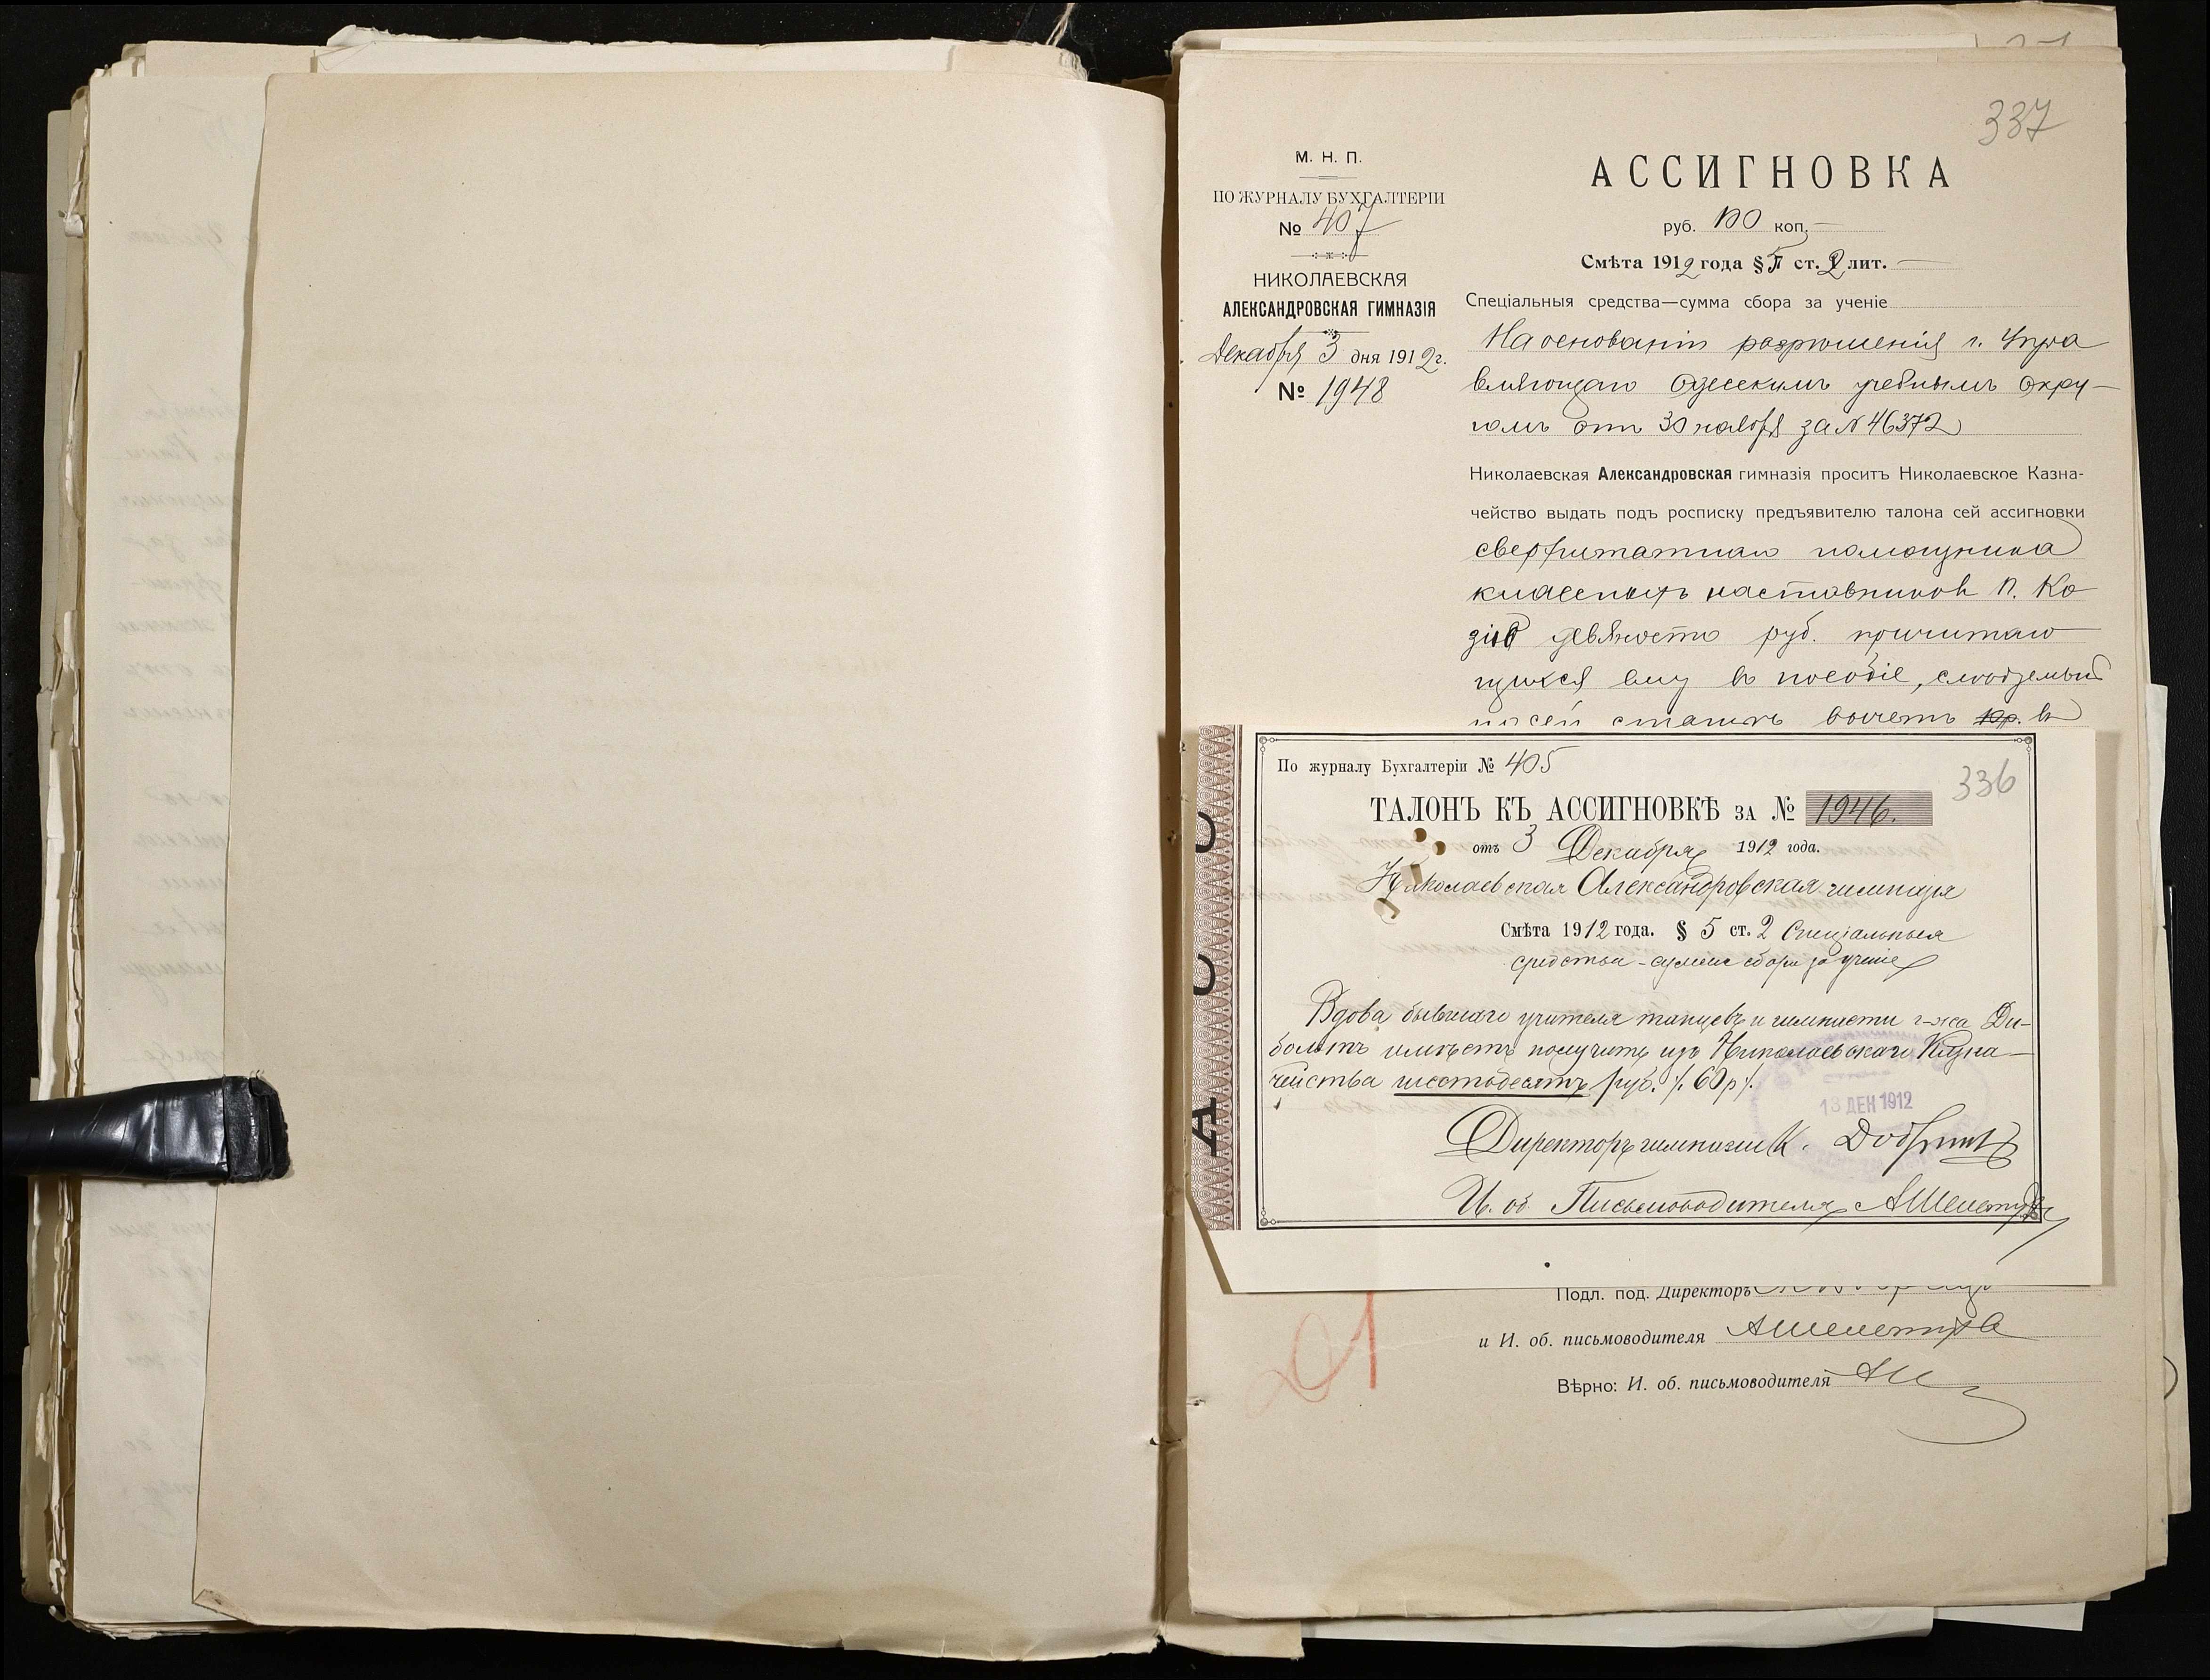 337
М. Н. П.
ПО ЖУРНАЛУ БУХГАЛТЕРІИ
№ 407
НИКОЛАЕВСКАЯ
АЛЕКСАНДРОВСКАЯ ГИМНАЗІЯ
Декабря 3 дня 1912г.
№ 1948
АССИГНОВКА
руб. 100 коп. —
Смѣта 1912 года § 5 ст. 2 лит. —
Спеціальныя средства—сумма сбора за ученіе
На основаніи разрѣшенія г. Упра
вляющаго Одесскимъ учебнымъ окру-
гомъ отъ 30 ноября за № 46372
Николаевская Александровская гимназія проситъ Николаевское Казна-
чейство выдать подъ росписку предъявителю талона сей ассигновки
сверхштатнаго помощника
классныхъ наставниковъ П. Ко
девяносто руб. причитаю
щихся ему въ пособіе,
вычетъ 10р. въ
По журналу Бухгалтеріи № 405
336
ТАЛОНЪ КЪ АССИГНОВКѢ ЗА № 1946.
отъ 3 Декабря 1912 года.
Николаевская Александровская гимназія
Смѣта 1912 года. § 5 ст. 2 Спеціальныя
средства - сумма сбора за ученіе
Вдова бывшаго учителя танцевъ и гимнасти г-жа Ди-
больтъ имѣетъ получить изъ Николаевскаго Казна-
чейства шестьдесятъ руб. /. 60 р /.
13 ДЕК 1912
Директоръ гимназіи К.
И. об. Письмоводителя
А С С
Подл. под. Директоръ
и И. об. письмоводителя
Вѣрно: И. об. письмоводителя
21